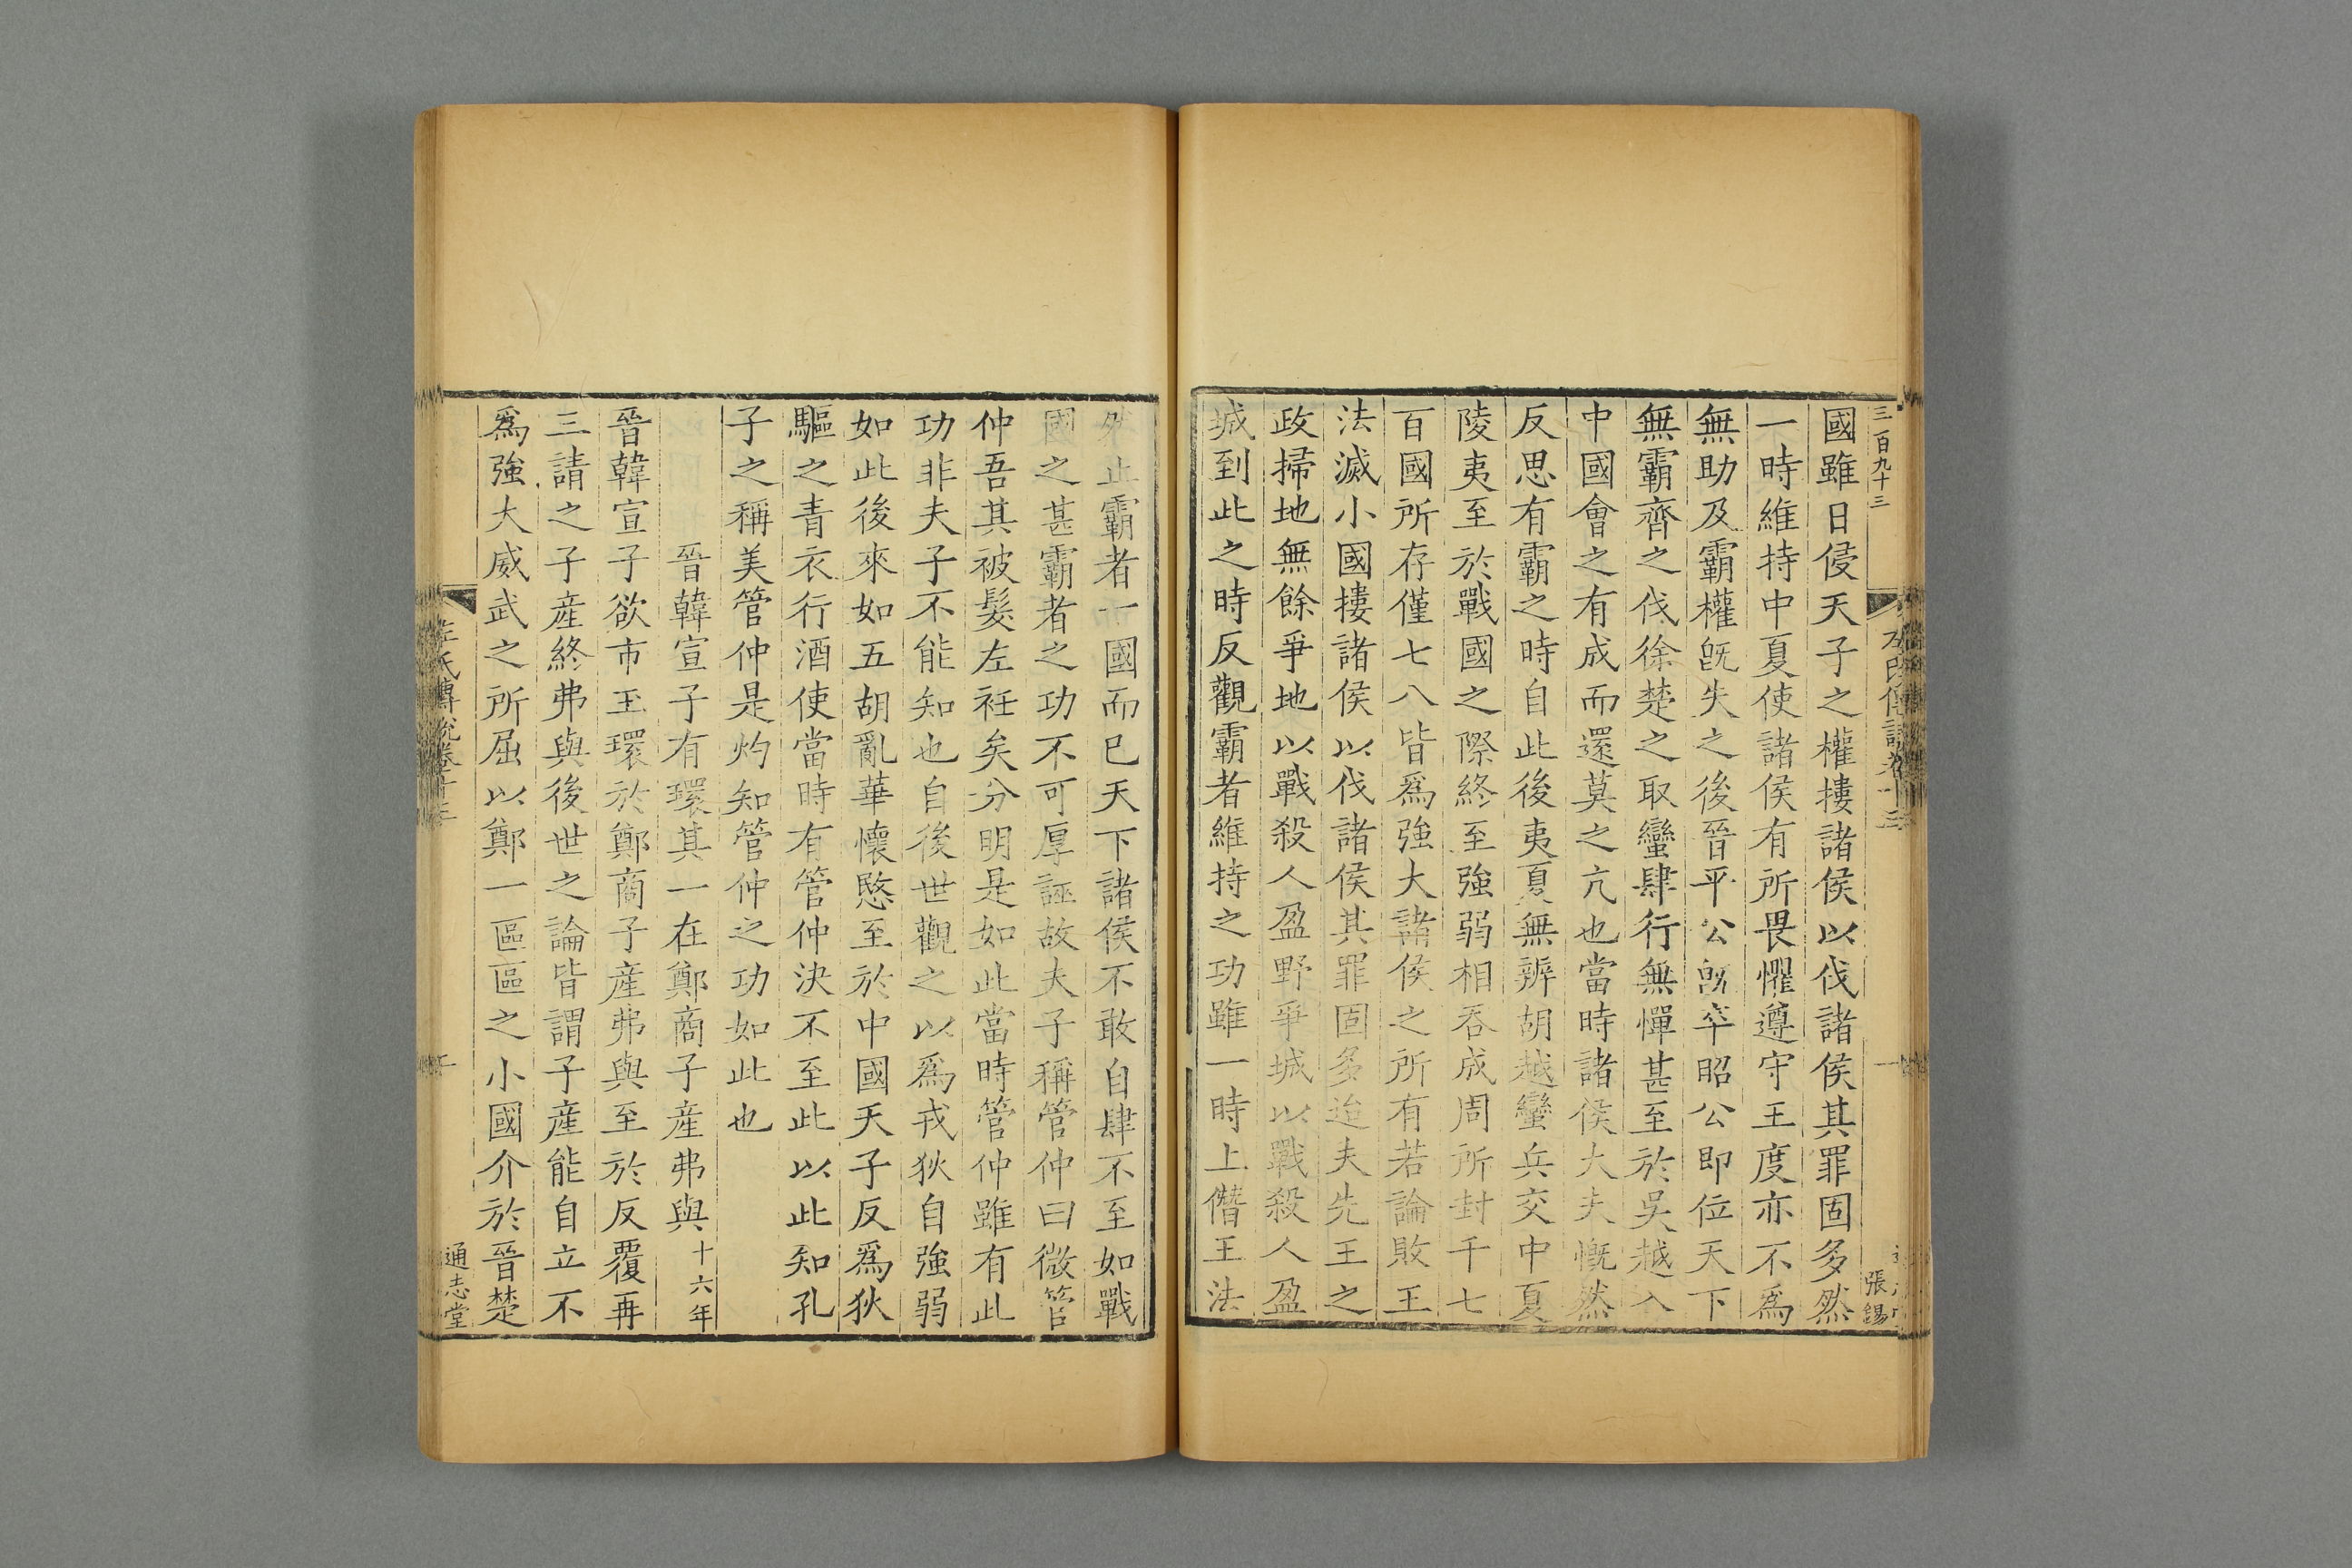 三百九十三
張錫
國雖日侵天子之權摟諸侯以伐諸侯其罪固多然
一時維持中夏使諸侯有所畏懼遵守王度亦不為
無助及霸權旣失之後晉平公旣卒昭公即位天下
無霸齊之伐徐楚之取蠻肆行無憚甚至於吳越入
中國會之有成而還莫之亢也當時諸侯大夫慨然
反思有霸之時自此後夷夏無辨胡越蠻兵交中夏
陵夷至於戰國之際終至強弱相吞成周所封千七
百國所存僅七八皆爲強大諸侯之所有若論敗王
法滅小國摟諸侯以伐諸侯其罪固多迨夫先王之
政掃地無餘爭地以戰殺人盈野爭城以戰殺人盈
城到此之時反觀霸者維持之功雖一時上僭王法
然止霸者一國而已天下諸侯不敢自肆不至如戰
國之甚霸者之功不可厚誣故夫子稱管仲曰微管
仲吾其被髮左衽矣分明是如此當時管仲雖有此
功非夫子不能知也自後世觀之以爲戎狄自強弱
如此後來如五胡亂華懷愍至於中國天子反爲狄
驅之青衣行酒使當時有管仲決不至此以此知孔
子之稱美管仲是灼知管仲之功如此也
晉韓宣子有環其一在鄭商子産弗與 十六年
晉韓宣子欲市玉環於鄭商子産弗與至於反覆再
三請之子産終弗與後世之論皆謂子産能自立不
爲強大威武之所屈以鄭一區區之小國介於晉楚
左氏傳說卷十三
通志堂